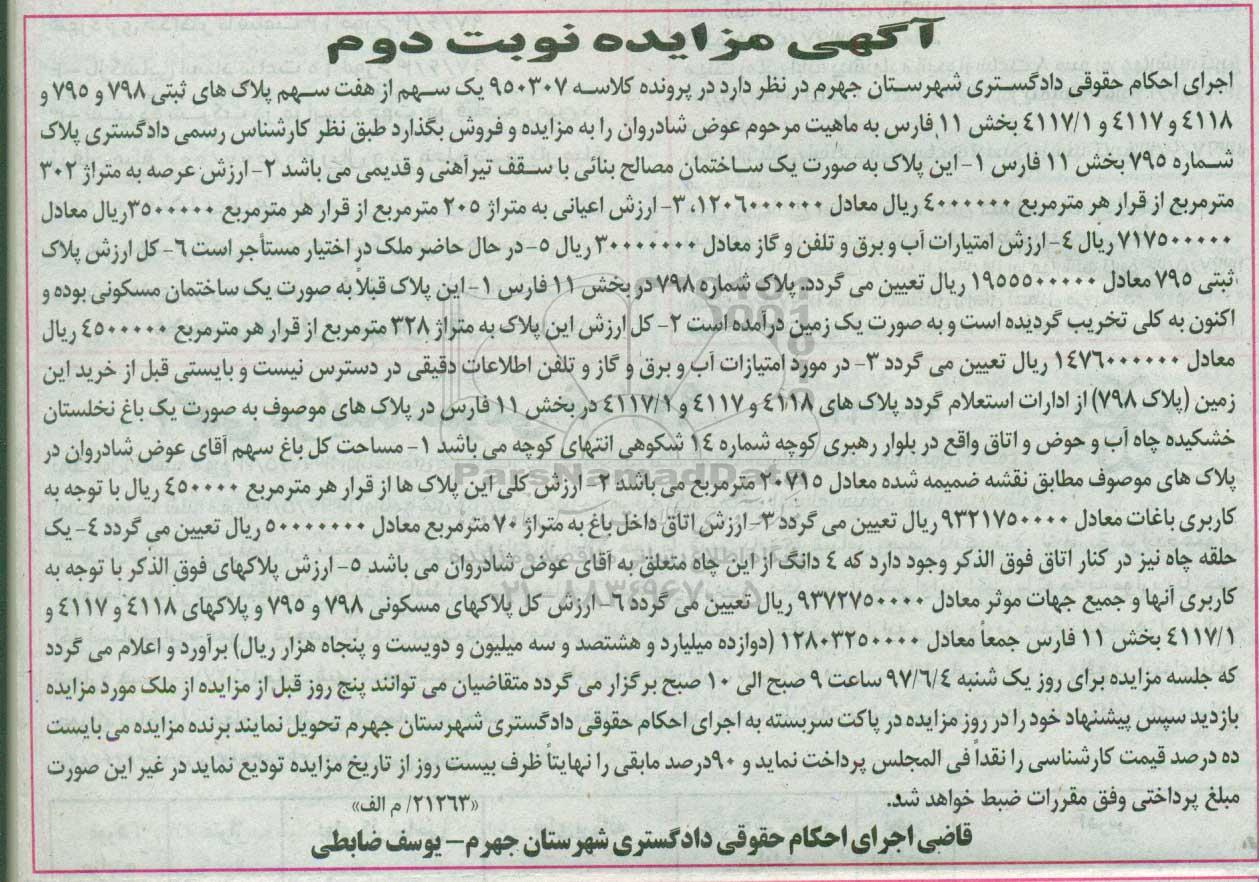 آگهی مزایده نوبت دوم
اجرای احکام حقوقی دادگستری شهرستان جهرم در نظر دارد در پرونده کلاسه ۹۵۰۳۰۷ یک سهم از هفت سهم پلاک های ثبتی ۷۹۸ و ۷۹۵ و
۴۱۱۸ و ۴۱۱۷ و ۴۱۱۷/۱ بخش ۱۱ فارس به ماهیت مرحوم عوض شادروان را به مزایده و فروش بگذارد طبق نظر کارشناس رسمی دادگستری پلاک
شماره ۷۹۵ بخش ۱۱ فارس ۱- این پلاک به صورت یک ساختمان مصالح بنائی با سقف تیرآهنی و قدیمی می باشد ۲- ارزش عرصه به متراژ ۳۰۲
مترمربع از قرار هر مترمربع ۴۰۰۰۰۰۰ ریال معادل ۱۲۰۶۰۰۰۰۰۰، ۳- ارزش اعیانی به متراژ ۲۰۵ مترمربع از قرار هر مترمربع ۳۵۰۰۰۰۰ریال معادل
۷۱۷۵۰۰۰۰۰ ریال ۴- ارزش امتیازات آب و برق و تلفن و گاز معادل ۳۰۰۰۰۰۰۰ ریال ۵- در حال حاضر ملک در اختیار مستأجر است ۶- کل ارزش پلاک
ثبتی ۷۹۵ معادل ۱۹۵۵۵۰۰۰۰۰ ریال تعیین می گردد. پلاک شماره ۷۹۸ در بخش ۱۱ فارس ۱- این پلاک قبلاً به صورت یک ساختمان مسکونی بوده و
اکنون به کلی تخریب گردیده است و به صورت یک زمین درآمده است ۲- کل ارزش این پلاک به متراژ ۳۲۸ مترمربع از قرار هر مترمربع ۴۵۰۰۰۰۰ ریال
معادل ۱۴۷۶۰۰۰۰۰۰ ریال تعیین می گردد ۳- در مورد امتیازات آب و برق و گاز و تلفن اطلاعات دقیقی در دسترس نیست و بایستی قبل از خرید این
زمین (پلاک ۷۹۸) از ادارات استعلام گردد پلاک های ۴۱۱۸ و ۴۱۱۷ و ۴۱۱۷/۱ در بخش ۱۱ فارس در پلاک های موصوف به صورت یک باغ نخلستان
خشکیده چاه آب و حوض و اتاق واقع در بلوار رهبری کوچه شماره ۱۴ شکوهی انتهای کوچه می باشد ۱- مساحت کل باغ سهم آقای عوض شادروان در
پلاک های موصوف مطابق نقشه ضمیمه شده معادل ۲۰۷۱۵ مترمربع می باشد ۲- ارزش کلی این پلاک ها از قرار هر مترمربع ۴۵۰۰۰۰ ریال با توجه به
کاربری باغات معادل ۹۳۲۱۷۵۰۰۰۰ ریال تعیین می گردد ۳- ارزش اتاق داخل باغ به متراژ ۷۰ مترمربع معادل ۵۰۰۰۰۰۰۰ ریال تعیین می گردد ۴- یک
حلقه چاه نیز در کنار اتاق فوق الذکر وجود دارد که ۴ دانگ از این چاه متعلق به آقای عوض شادروان می باشد ۵- ارزش پلاکهای فوق الذکر با توجه به
کاربری آنها و جمیع جهات موثر معادل ۹۳۷۲۷۵۰۰۰۰ ریال تعیین می گردد ۶- ارزش کل پلاکهای مسکونی ۷۹۸ و ۷۹۵ و پلاکهای ۴۱۱۸ و ۴۱۱۷ و
۴۱۱۷/۱ بخش ۱۱ فارس جمعاً معادل ۱۲۸۰۳۲۵۰۰۰۰ (دوازده میلیارد و هشتصد و سه میلیون و دویست و پنجاه هزار ریال) برآورد و اعلام می گردد
که جلسه مزایده برای روز یک شنبه ۹۷/۶/۴ ساعت ۹ صبح الی ۱۰ صبح برگزار می گردد متقاضیان می توانند پنج روز قبل از مزایده از ملک مورد مزایده
بازدید سپس پیشنهاد خود را در روز مزایده در پاکت سربسته به اجرای احکام حقوقی دادگستری شهرستان جهرم تحویل نمایند برنده مزایده می بایست
ده درصد قیمت کارشناسی را نقداً فی المجلس پرداخت نماید و ۹۰درصد مابقی را نهایتاً ظرف بیست روز از تاریخ مزایده تودیع نماید در غیر این صورت
مبلغ پرداختی وفق مقررات ضبط خواهد شد.
«۲۱۲۶۳/ م الف»
قاضی اجرای احکام حقوقی دادگستری شهرستان جهرم- یوسف ضابطی
ParsNamadData